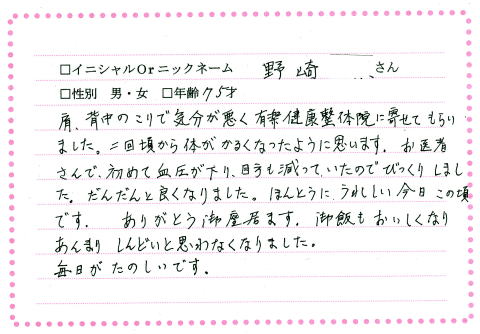 □イニシャルOrニックネーム 野崎 さん
□性別 男・女 □年齢 75才
肩、背中のこりで気分が悪く有楽健康整体院に寄せてもらい
ました。二回頃から体がかるくなったように思います。お医者
さんで、初めて血圧が下り、目方も減っていたのでびっくりしまし
た。だんだんと良くなりました。ほんとうに うれしい今日この頃
です. ありがとう御座居ます. 御飯もおいしくなり
あんまり しんどいと思わなくなりました。
毎日が たのしいです.